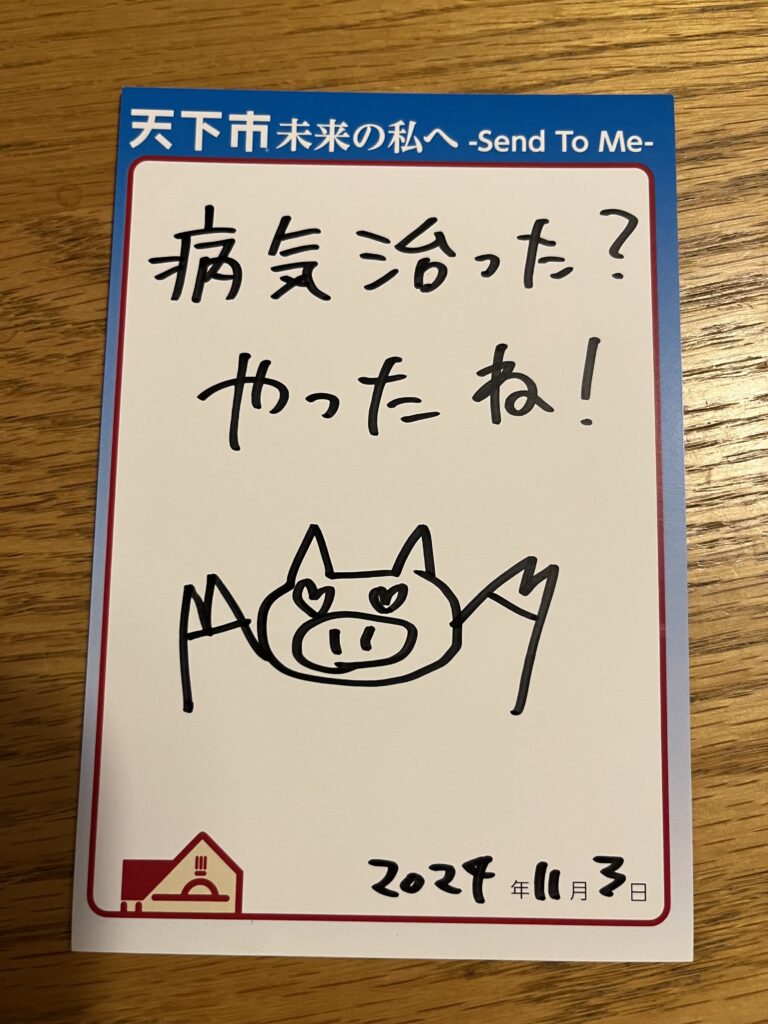 天下市 未来の私へ -Send To Me-
病気治った?
やったね!
2024年11月3日